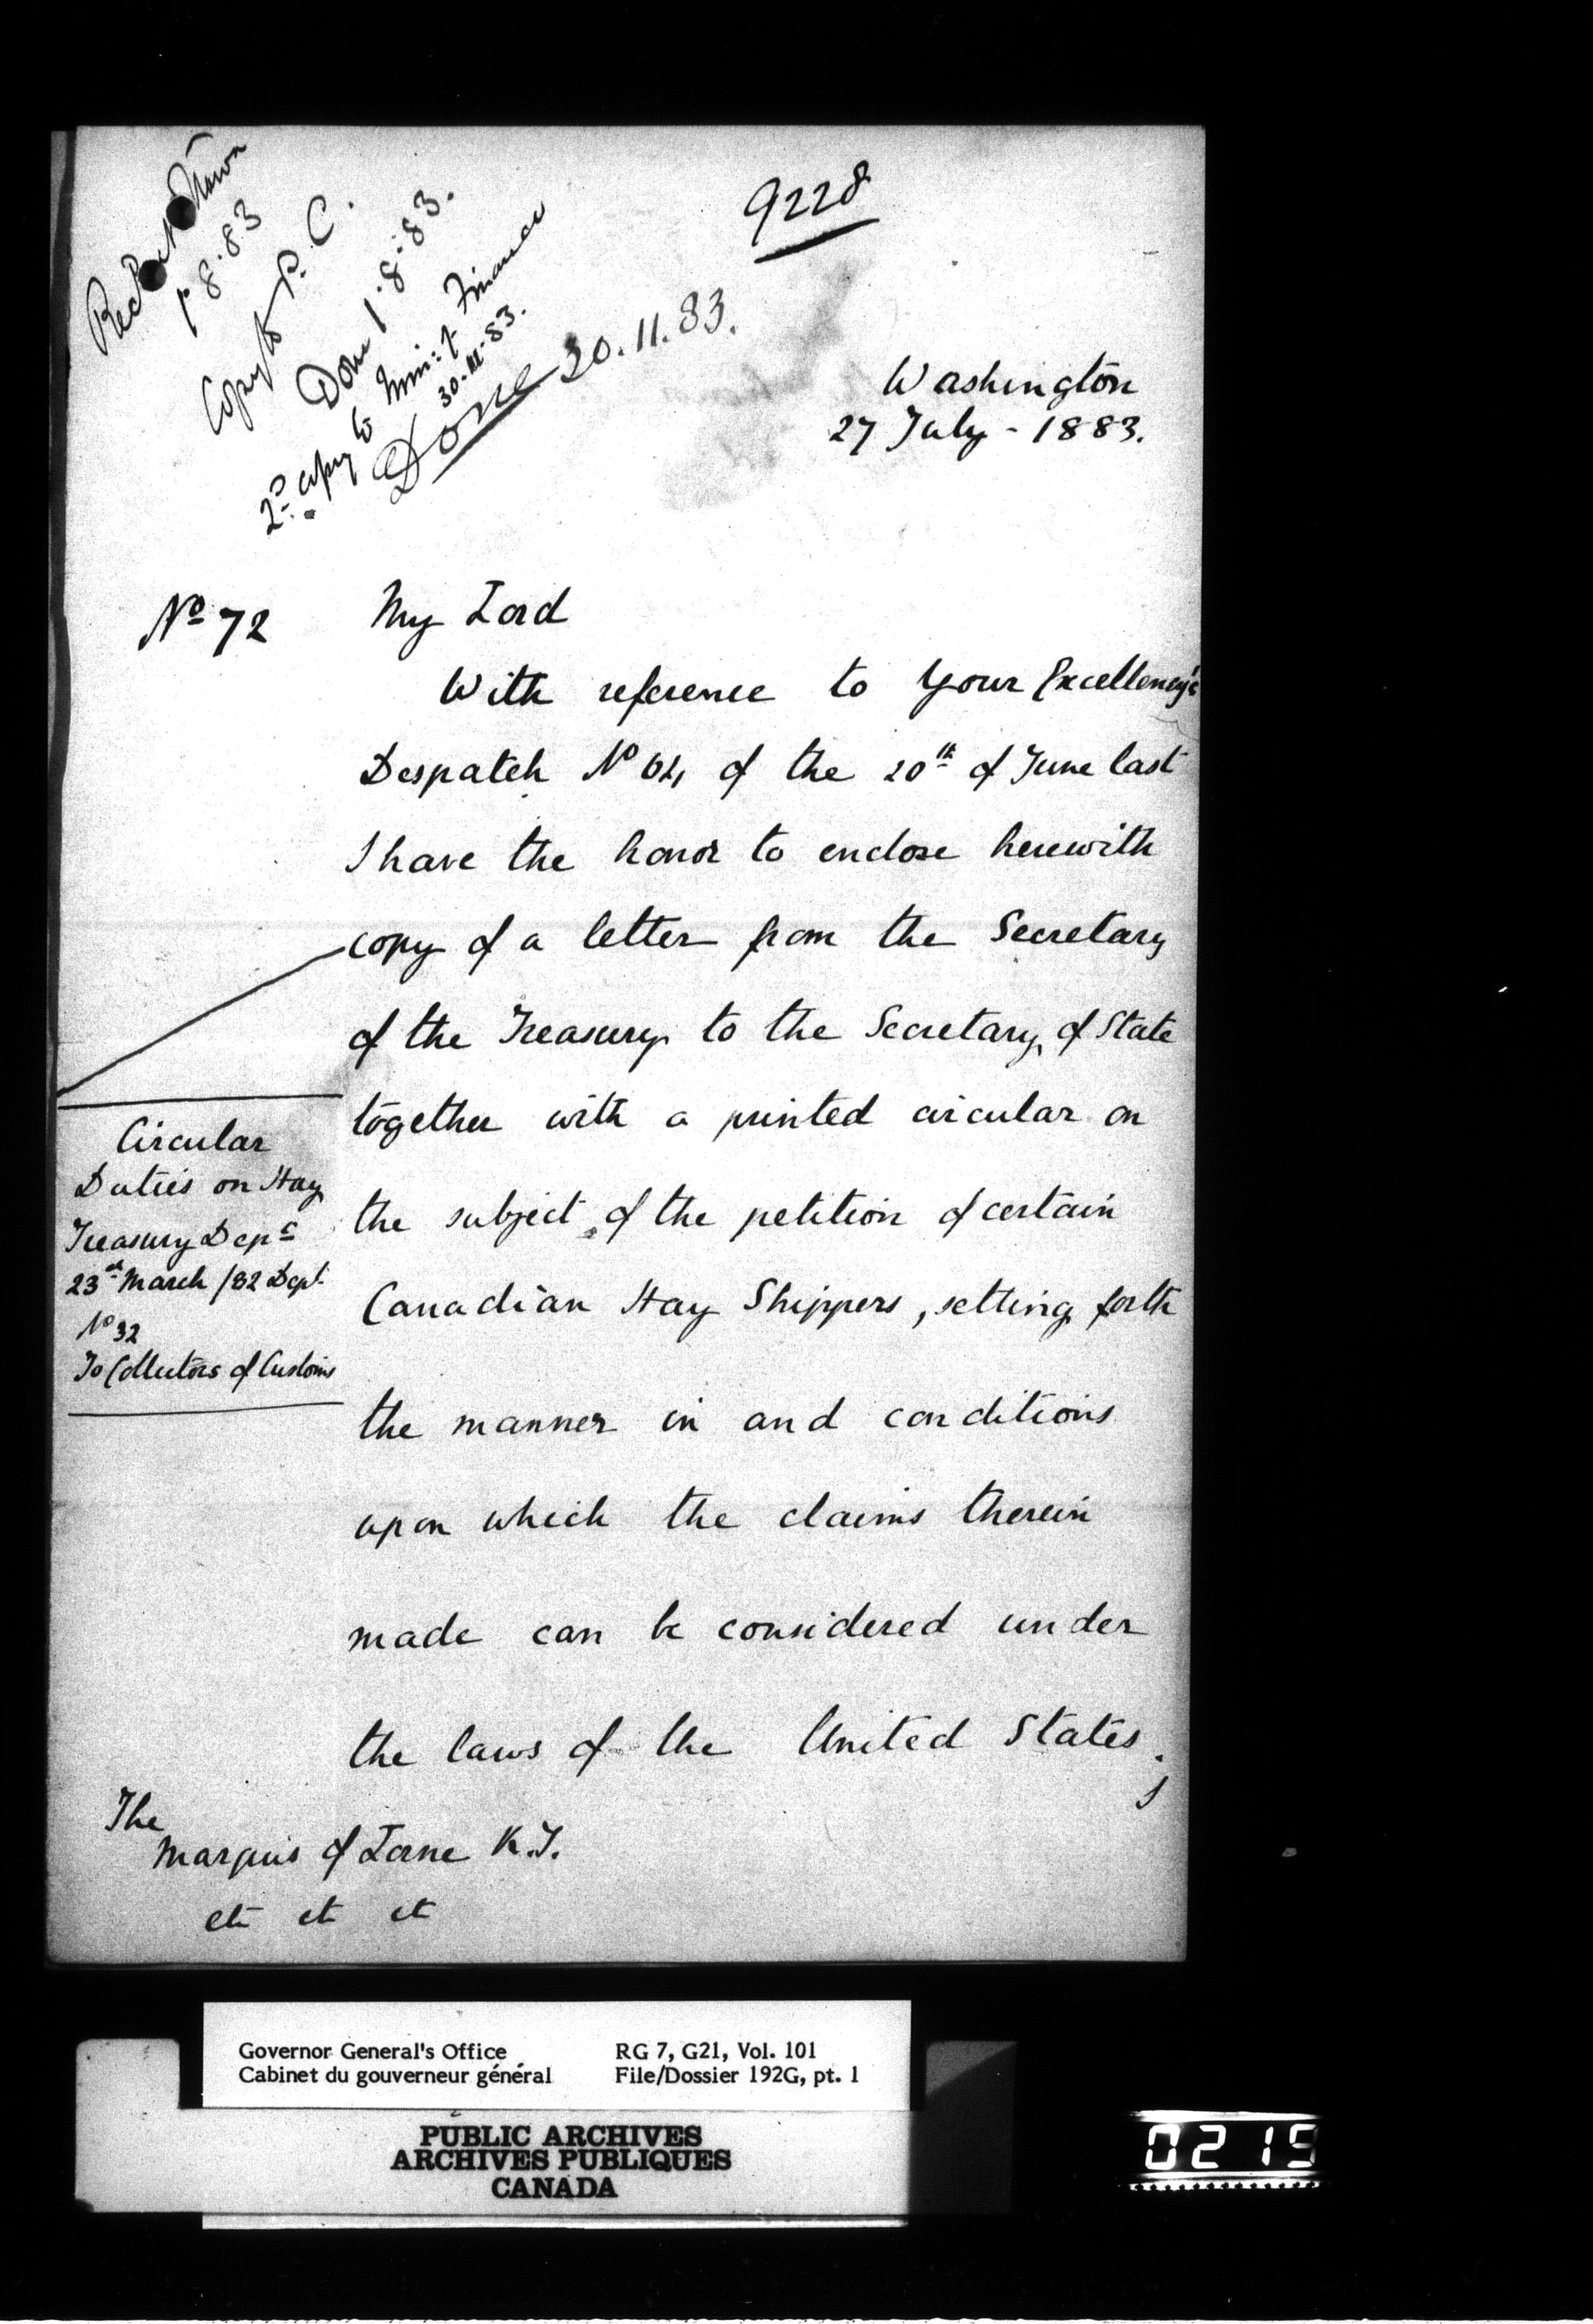 9228
1. 8. 83
Copy to P. C.
Done 1. 8. 83.
2D copy to Min: of Finance
30. 11. 83.
Done 30. 11. 83.
Washington
27 July - 1883.
No 72
My Lord
With reference to Your Excellency's
Despatch No 64 of the 20th of June last
I have the honor to enclose herewith
copy of a letter from the Secretary
of the Treasury to the Secretary of State
together with a printed circular on
the subject of the petition of certain
Canadian Hay Shippers, setting forth
the manner in and conditions
upon which the claims therein
made can be considered under
the laws of the United States.
I
Circular
Duties on Hay
Treasury Dept
23rd March /82 Dept.
No 32
To Collectors of Customs
The
Marquis of Lorne K.T.
etc etc etc
Governor General's Office
Cabinet du gouverneur général
RG 7, G21, Vol. 101
File/Dossier 192G, pt. 1
PUBLIC ARCHIVES
ARCHIVES PUBLIQUES
CANADA
0215